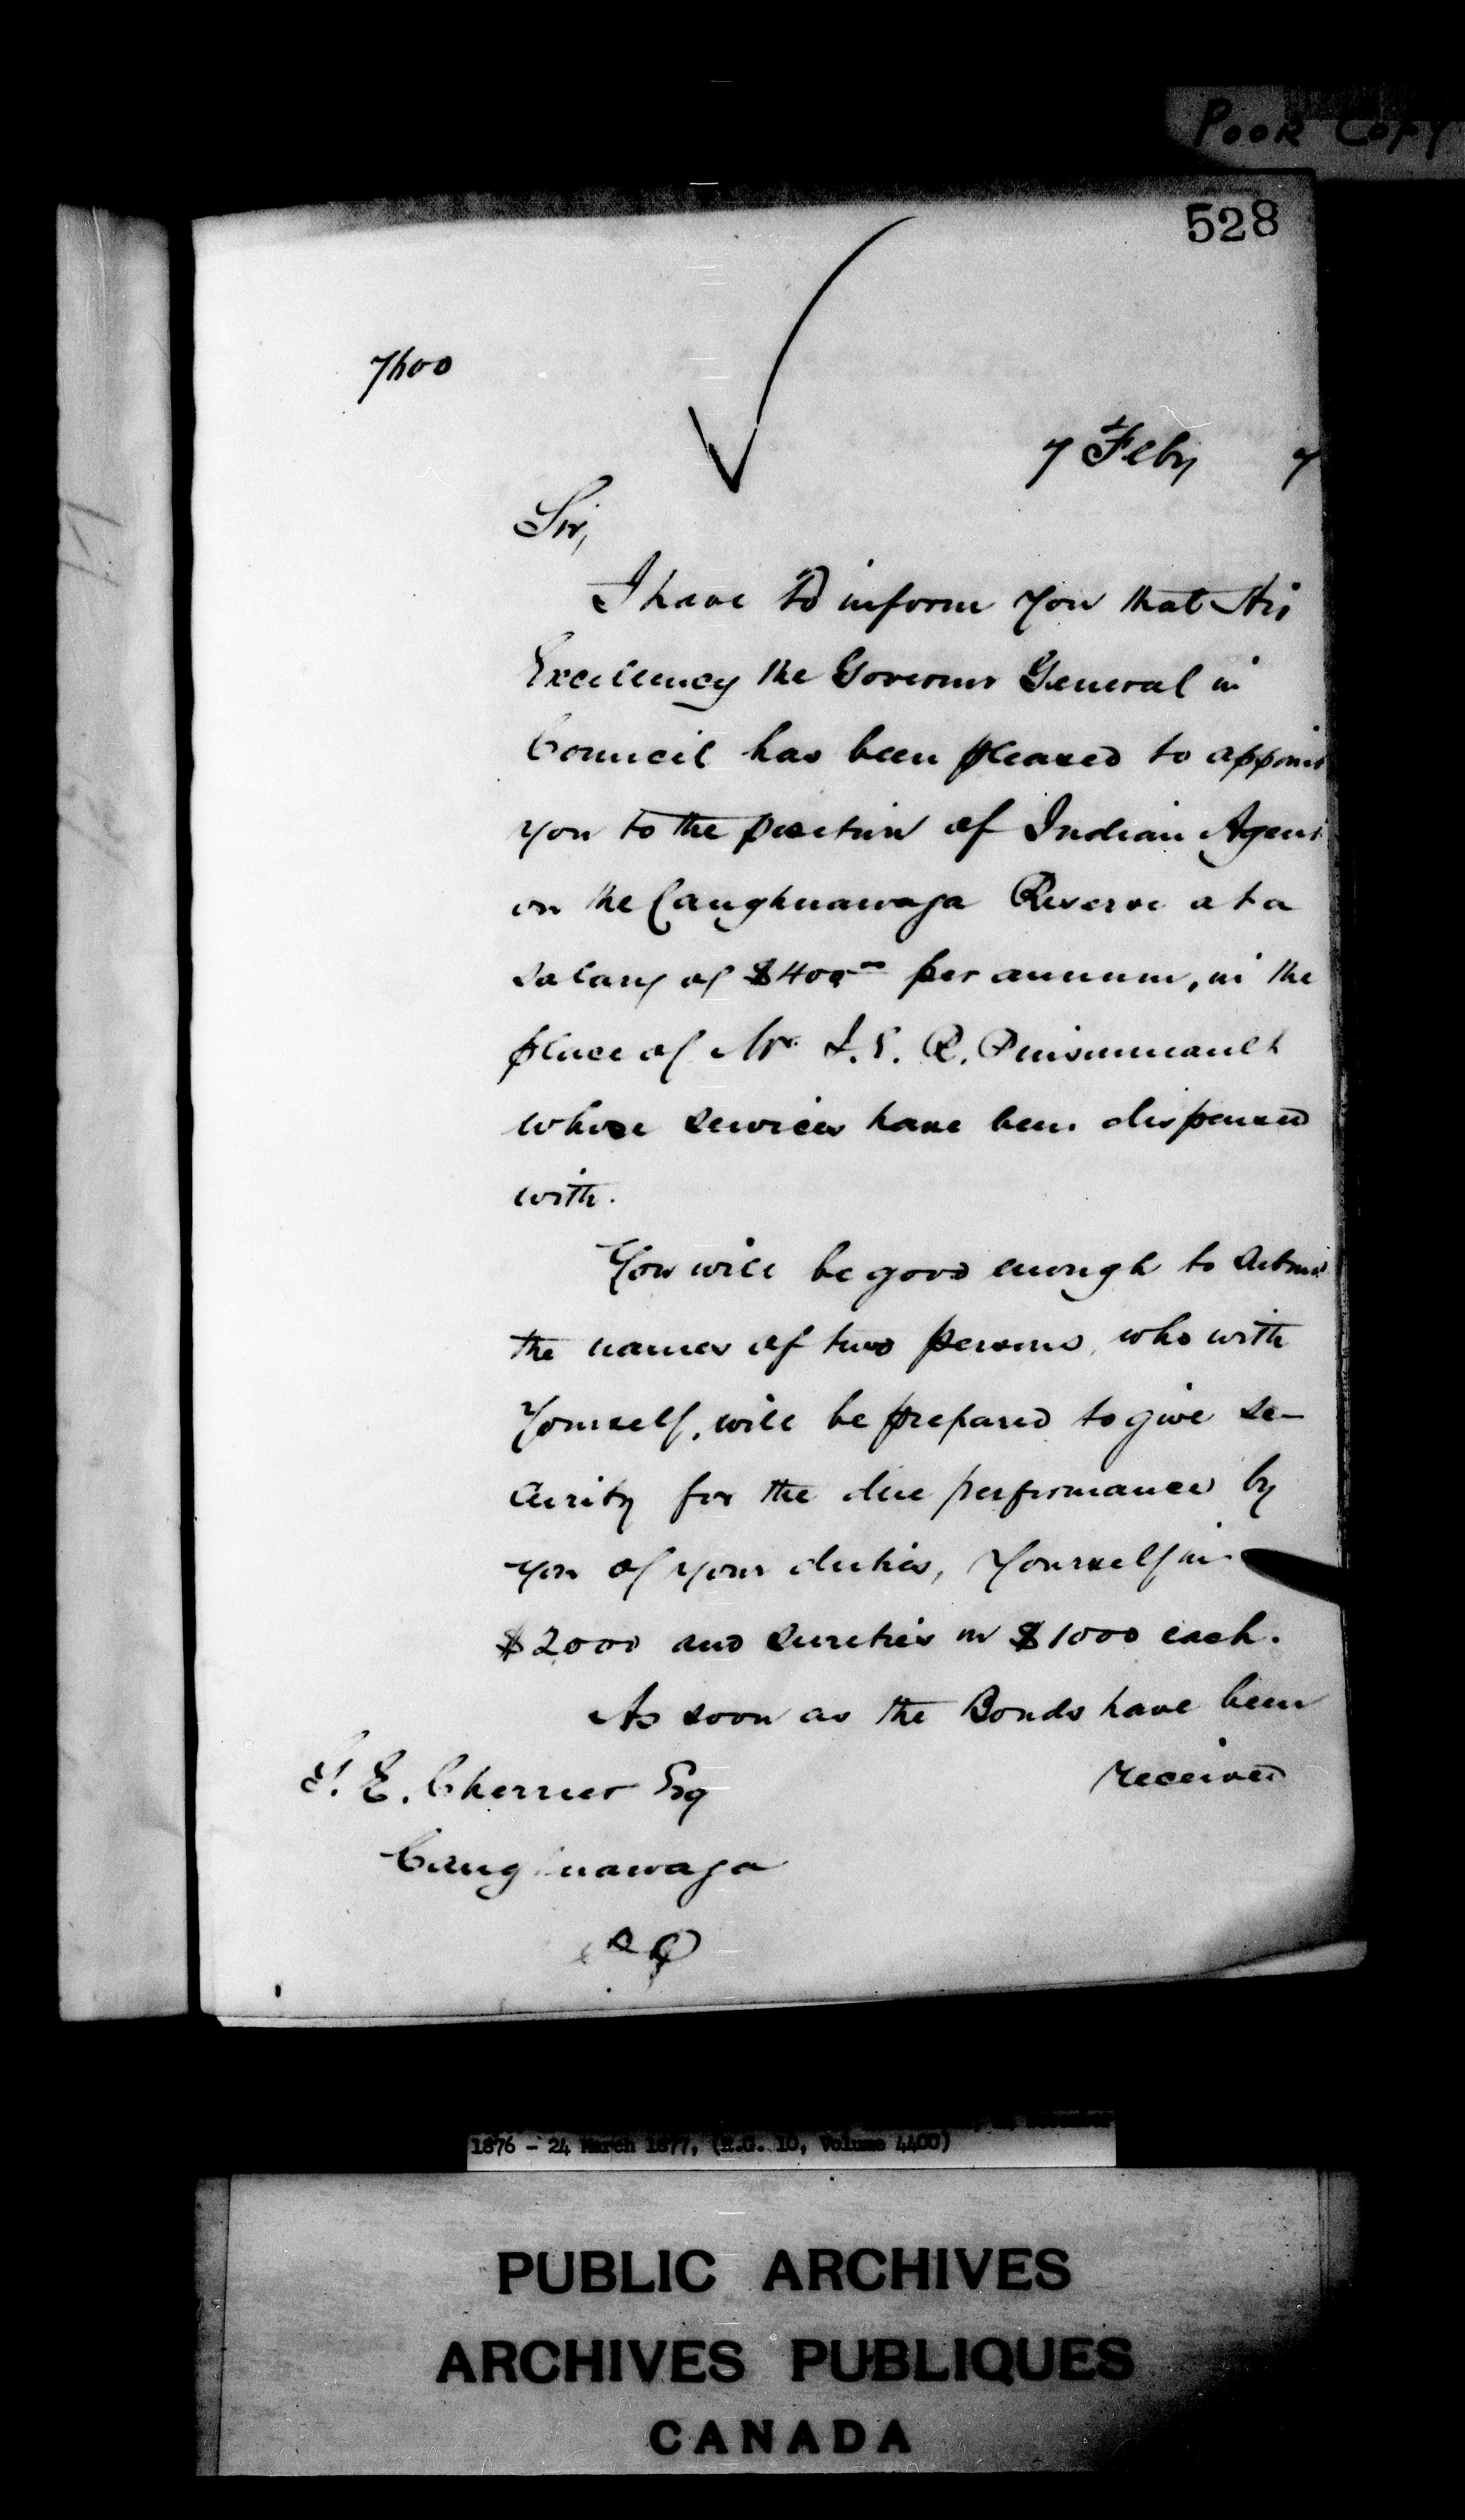 POOR COPY
528
7600
7 Feby 7
Sir,
I have to inform you that His
Excellency the Governor General in
Council has been pleased to appoint
you to the position of Indian Agent
on the Caughnawaga Reserve at a
salary of $400 00 per annum, in the
place of Mr. J. E. R. Pinsonneault
whose services have been dispensed
with.
You will be good enough to submit
the names of two persons, who with
yourself, will be prepared to give se-
curity for the due performance by
you of your duties, Yourself in
$2000 and sureties in $1000 each.
As soon as the Bonds have been
received
E. Cherrier Esq
Caughnawaga
PQ
1876 - 24 March 1877, (R.G. 10, Volume 4400)
PUBLIC ARCHIVES
ARCHIVES PUBLIQUES
CANADA